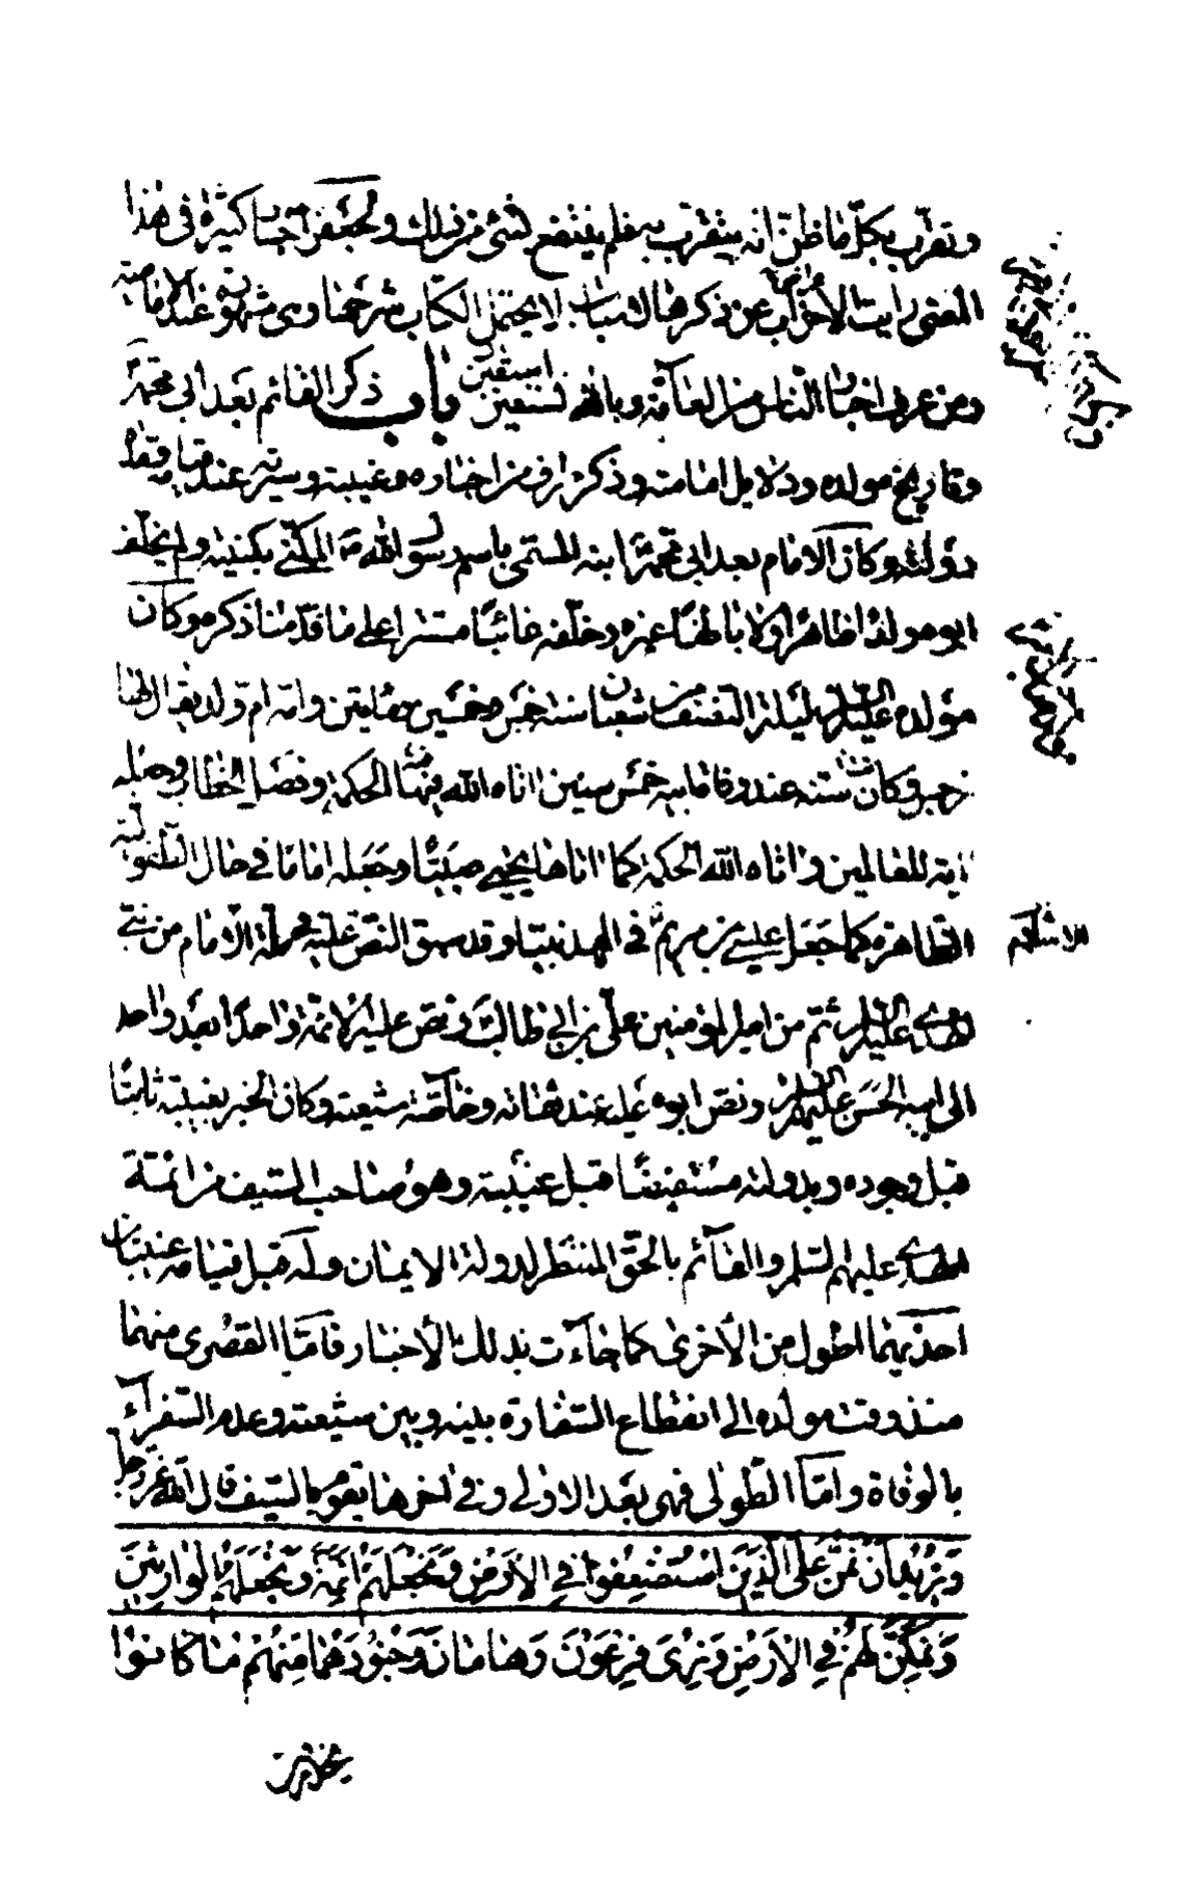 وتقرّب بكلّ ما ظنّ انه يتقرب به فلم ينتفع بشئ من ذلك ولجعفر اخبار كثيرة فى هذا
المعنى رايت الاضراب عن ذكرها لاسباب لا يحتمل الكتاب شرحها وهى مشهورة عند الامامية
ومن عرف اخبار الناس من العآمّة وبالله نستعين باب ذكر القائم بعد ابى محمّد
وتاريخ مولده ودلايل امامته وذكر طرف من اخباره وغيبته وسيرته عند قيامه
دولته وكان الامام بعد ابى محمّد ابنه المسمّى باسم رسول الله المكنّى بكنيته ولم يخلّف
ابوه ولدًا ظاهرًا ولا باطنًا غيره وخلّفه غائبًا مستترا على ما قدّمنا ذكره وكان
مولده عليه السلام ليلة النصف من شعبان سنة خمس وخمسين ومائتين وامّه امّ ولد يقال لها
نرجس وكان سنه عند وفاة ابيه خمس سنين اتاه الله فيها الحكمة وفصل الخطاب وجعله
اية للعالمين واتاه الله الحكمة كما اتاها يحيى صبيًّا وجعله امامًا في حال الطفولية
الظاهرة كما جعل عيسى بن مريم في المهد نبيّا وقد سبق النص عليه في ملة الاسلام من نبي
الهدى عليه السلام ثم من امير المؤمنين علي بن ابي طالب ونص عليه الائمة واحدًا بعد واحد
الى ابيه الحسن عليه السلام ونصّ ابوه عليه عند ثقاته وخاصّة شيعته وكان الخبر بغيبته ثابتًا
قبل وجوده وبدولته مستفيضًا قبل غيبته وهو صاحب السيف من ائمّة
الهدى عليهم السلم والقآئم بالحقّ المنتظر لدولة الايمان وله قبل قيامه غيبتان
احديهما اطول من الأخرى كما جاءت بذلك الأخبار فامّا القصرى منهما
منذ وقت مولده الى انقطاع السّفارة بينه وبين شيعته وعدم السّفرآء
بالوفاة وامّا الطّولى فهى بعد الاولى وفى اخرها يقوم بالسّيف قال الله عزّ وجلّ
وَنُرِيدُ اَنْ نَمُنَّ عَلَى الَّذِينَ اسْتُضْعِفُوا فِي الاَرْضِ وَنَجْعَلَهُمْ اَئِمَّةً وَنَجْعَلَهُمُ الْوارِثِينَ
وَنُمَكِّنَ لَهُمْ فِي الاَرْضِ وَنُرِىَ فِرْعَوْنَ وَهامانَ وَجُنُودَهُما مِنْهُمْ ما كانوُا
يحذرون